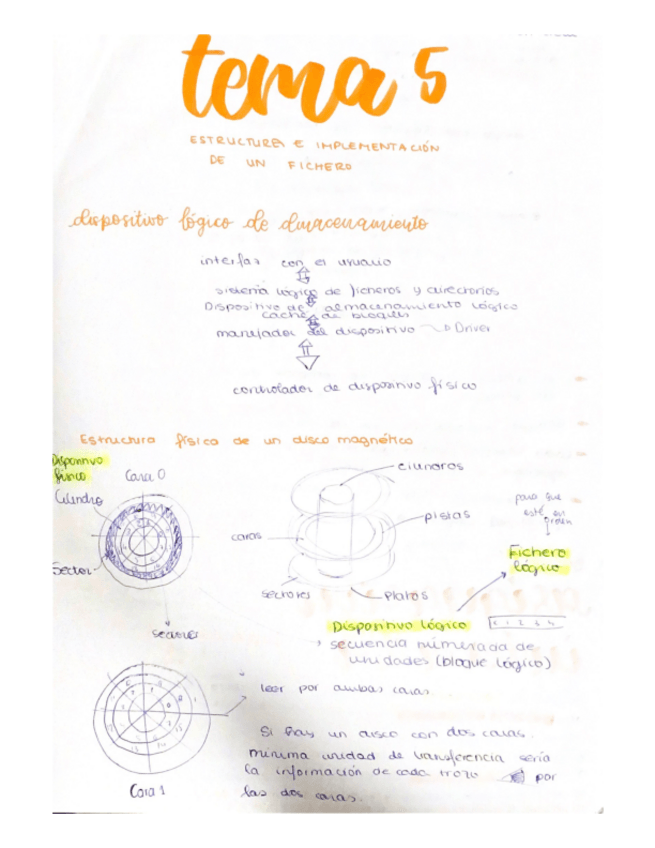 tema 5
ESTRUCTURA E IMPLEMENTACIÓN
DE UN FICHERO
dispositivo lógico de almacenamiento
interfaz con el usuario
sistema lógico de ficheros y directorios
Dispositivo de almacenamiento lógico
caché de bloques
manejador del dispositivo → Driver
controlador de dispositivo físico
Estructura física de un disco magnético
Dispositivo
físico
Cara 0
Cilindro
Sector
sectores
cilindros
pistas
caras
sectores
platos
para que
esté en
orden
Fichero
lógico
Dispositivo lógico
secuencia numerada de
unidades (bloque lógico)
leer por ambas caras.
Si hay un disco con dos caras.
mínima unidad de transferencia sería
la información de cada trozo por
las dos caras.
Cara 1